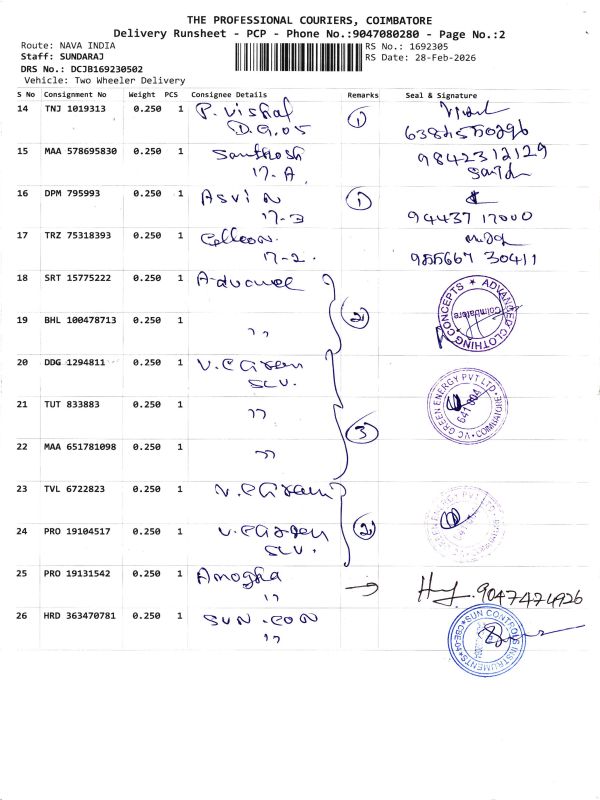 THE PROFESSIONAL COURIERS, COIMBATORE
Delivery Runsheet - PCP - Phone No.:9047080280 - Page No.:2
Route: NAVA INDIA
RS No.: 1692305
Staff: SUNDARAJ
RS Date: 28-Feb-2026
DRS No.: DCJB169230502
Vehicle: Two Wheeler Delivery
S No Consignment No Weight PCS Consignee Details Remarks Seal & Signature
14 TNJ 1019313 0.250 1 P. Vishal 1
D.G.05
15 MAA 578695830 0.250 1 Santhosh 9842312129
17-A
16 DPM 795993 0.250 1 Asvi N 1
17-3 94437 17000
17 TRZ 75318393 0.250 1
17-2. 985667 30411
18 SRT 15775222 0.250 1 2 ADVANCED CLOTHING CONCEPTS Coimbatore
19 BHL 100478713 0.250 1 ,,
20 DDG 1294811 0.250 1 V.C Green
SLV.
21 TUT 833883 0.250 1 ,, 3 V.C. GREEN ENERGY PVT LTD COIMBATORE 641 004
22 MAA 651781098 0.250 1 ,,
23 TVL 6722823 0.250 1 V.C Green
24 PRO 19104517 0.250 1 V.C Green 2
SLV.
25 PRO 19131542 0.250 1 Amogha 9047474926
,,
26 HRD 363470781 0.250 1 SUN.CON SUN CONTROLS INSTRUMENTS CBE-04
,,